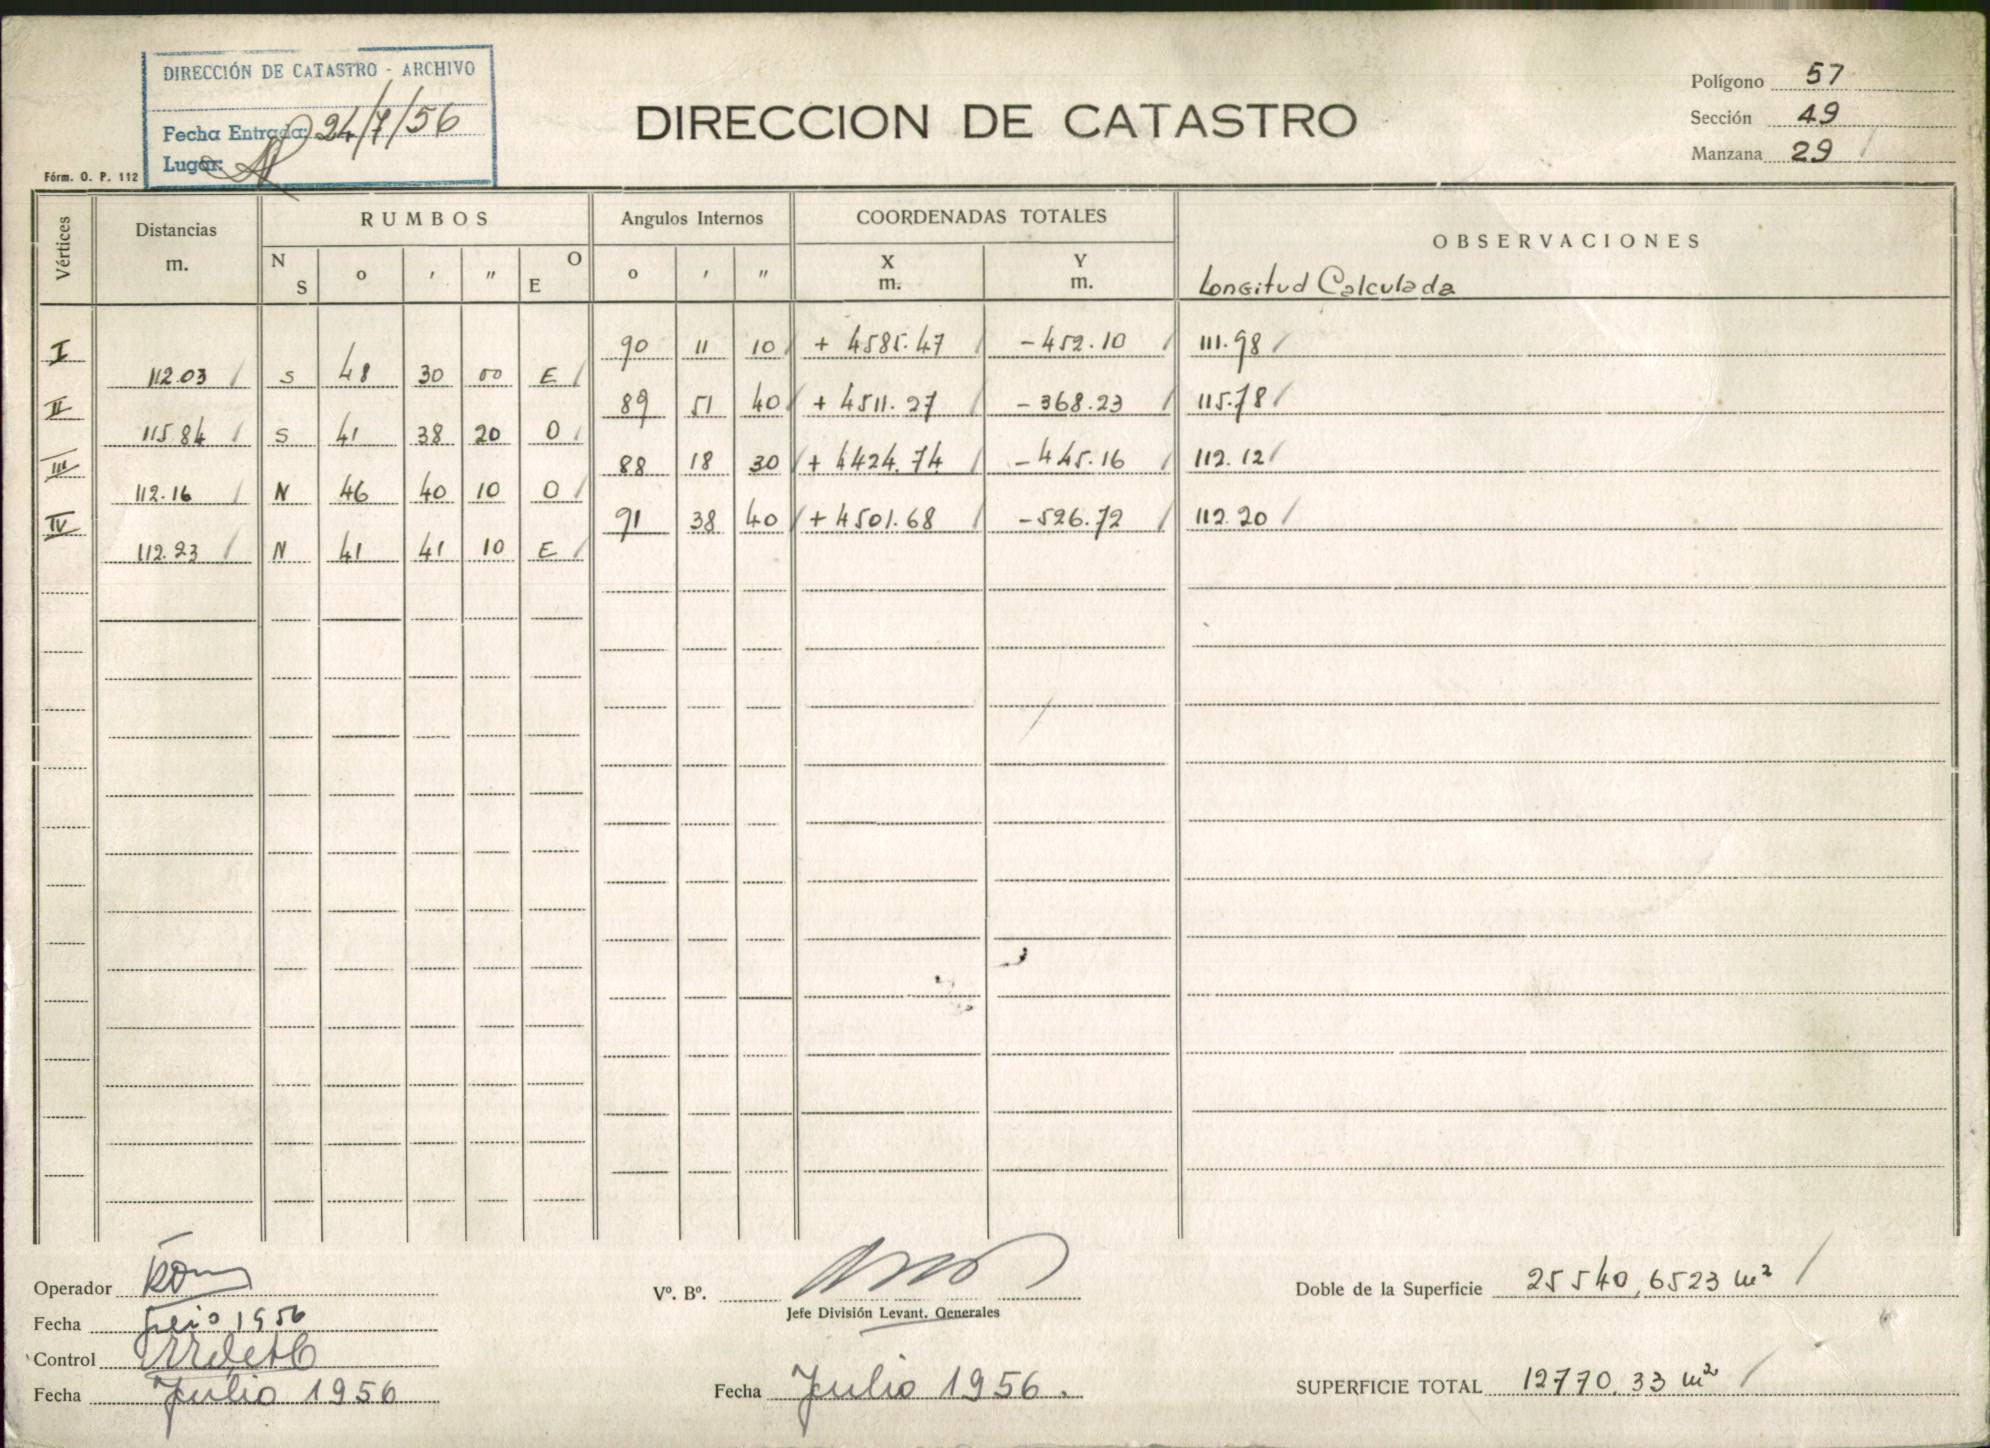 DIRECCIÓN DE CATASTRO - ARCHIVO
Fecha Entrada: 24/7/56
Lugar:
Fórm. O. P. 112
DIRECCION DE CATASTRO
Polígono 57
Sección 49
Manzana 29
Vértices Distancias m. RUMBOS Angulos Internos COORDENADAS TOTALES OBSERVACIONES
N S o ' " O E o ' " X m. Y m. Longitud Calculada
I 90 11 10 + 4585.47 -452.10 111.98
112.03 S 48 30 00 E
II 89 51 40 + 4511.27 -368.23 115.78
115.84 S 41 38 20 O
III 88 18 30 + 4424.74 -445.16 112.12
112.16 N 46 40 10 O
IV 91 38 40 + 4501.68 -526.72 112.20
112.23 N 41 41 10 E
Operador
Fecha 1956
Control
Fecha Julio 1956
Vº. Bº.
Jefe División Levant. Generales
Fecha Julio 1956.
Doble de la Superficie 25540,6523 m²
SUPERFICIE TOTAL 12770.33 m²